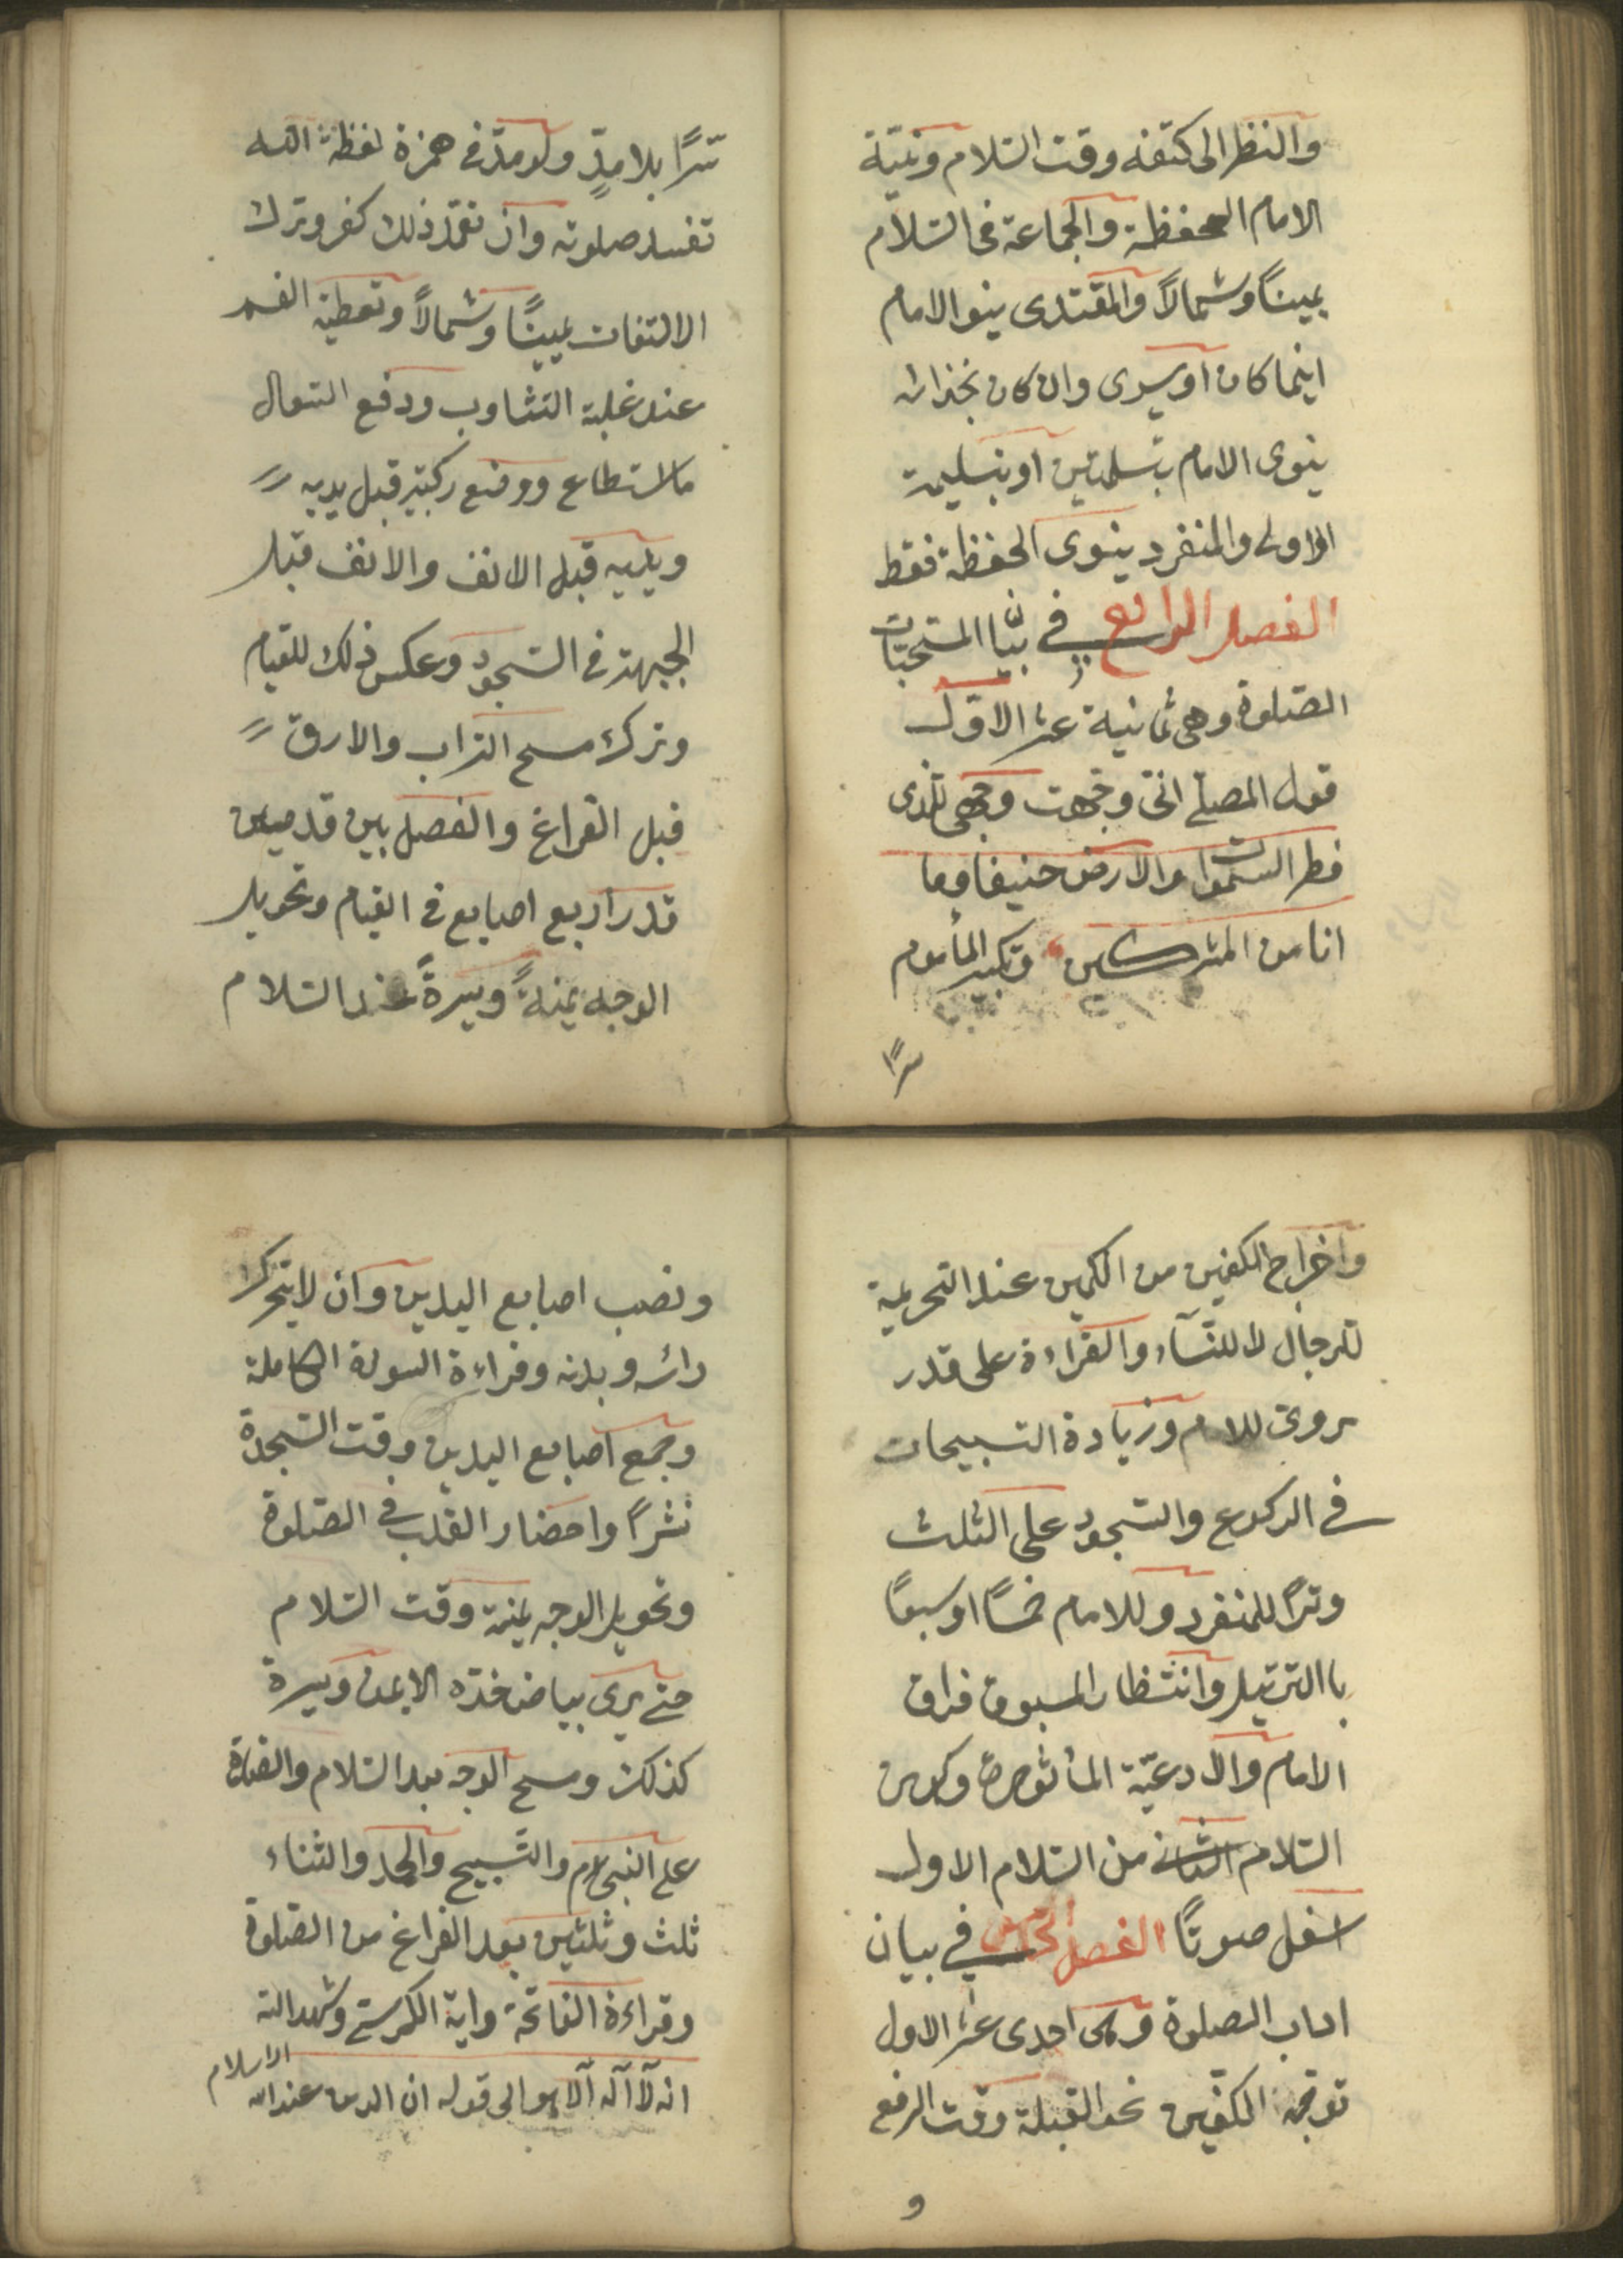 والنظر الى كتفه وقت السلام ونيّة
الامام الحفظة والجماعة فى السلام
يمينًا وشمالاً والمقتدى ينو الامام
اينما كان او يسرى وان كان بحذائه
ينوى الامام بتسلمتين او بتسليمة
الاولى والمنفرد ينوى الحفظة فقط
الفصل الرابع في بيان المستحبات
الصلوة وهى ثمانية عشر الاوّل
قول المصلے انى وجّهت وجهى للذى
فطر السموات والارض حنيفا وما
انا من المشركين وتكبير المأموم
سرًا
سّرًا بلا مدٍّ ولو مدّ فى همزة لفظة الله
تفسد صلوته وان تعمّد ذلك كفر وترك
الالتفات يمينًا وشمالاً وتغطية الفم
عند غلبة التثاوب ودفع السعال
مااستطاع ووضع ركبتيه قبل يديه
ويديه قبل الانف والانف قبل
الجبهة فى السجود وعكس ذلك للقيام
وترك مسح التراب والارق
قبل الفراغ والفصل بين قدمين
قدر اربع اصابع فى القيام وتحويل
الوجه يمنةً ويسرةً عند السلام
واخراج الكفين من الكمين عند التحريمة
للرجال لا للنسآء والقراءة على قدر
يروى للامام وزيادة التسبيحات
في الركوع والسجود على الثلث
وترًا للمنفرد وللامام خمسًا او سبعًا
باالترتيل وانتظار المسبوق فراق
الامام والادعيّة المأثورة وكون
السلام الثانى من السلام الاول
اسفل صوتًا الفصل الخامس في بيان
اداب الصلوة وهى احدى عشر الاول
توجّه الكفّين نحو القبلة وقت الرفع
و
ونصب اصابع اليدين وان لا يتحرك
رائسه وبدنه وقراءة السورة الكاملة
وجمع اصابع اليدين وقت السجدة
نشرًا واحضار القلب فى الصلوة
وتحويل الوجه يمنة وقت السلام
حتے يرى بياض خدّه الايمن ويسرة
كذلك ومسح الوجه بعد السلام والصلوة
على النبىّ م والتّسبيح والحمد والثناء
ثلث وثلثين بعد الفراغ من الصلوة
وقراءة الفاتحة واية الكرسے وشهد الله
انه لآ اله الا هو الى قوله ان الدين عند الله الاسلام